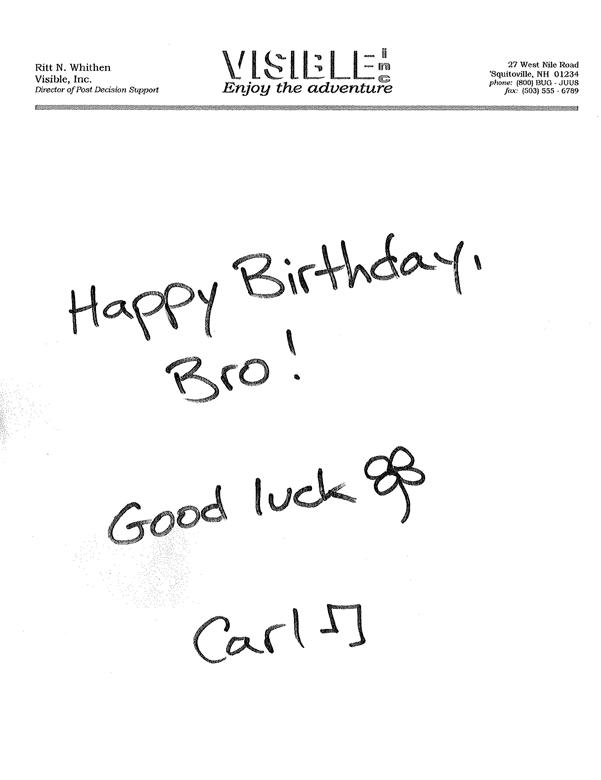 Ritt N. Whithen
Visible, Inc.
Director of Post Decision Support
VISIBLE inc
Enjoy the adventure
27 West Nile Road
'Squitoville, NH 01234
phone: (800) BUG - JUUS
fax: (503) 555 - 6789
Happy Birthday,
Bro!
Good luck
Carl